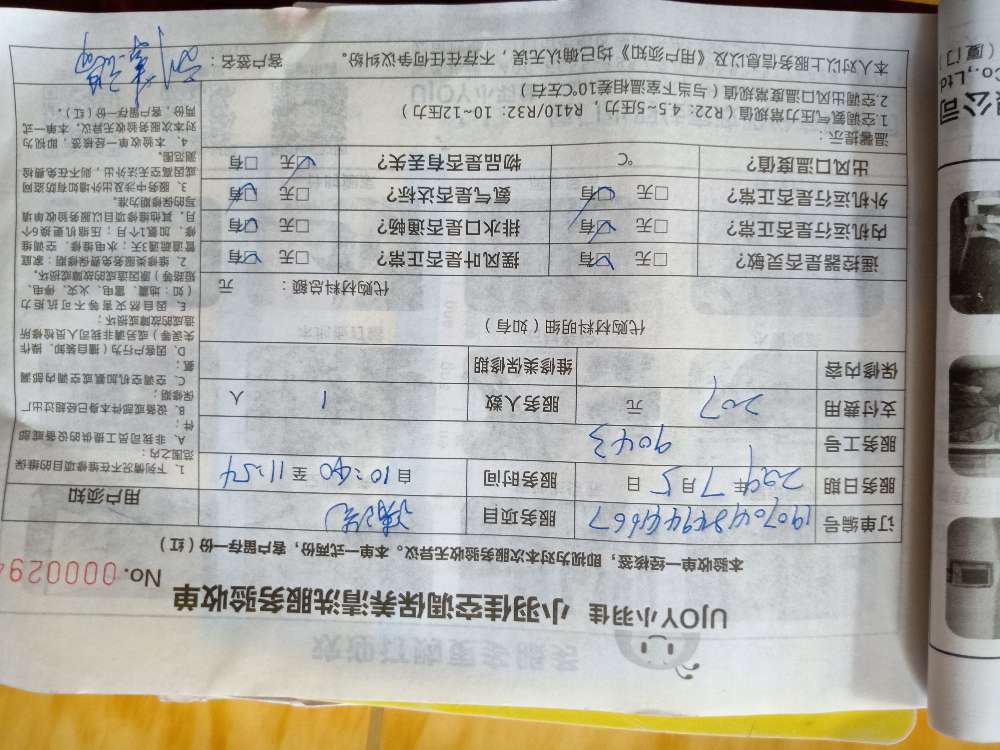 UJOY小羽佳 小羽佳空调保养清洗服务验收单
No. 000029
本验收单一经核签，即视为对本次服务验收无异议。本单一式两份，客户留存一份（红）
订单编号 服务项目 清洗
服务日期 年7月5日 服务时间 自10:40至11:54
服务工号 9043
支付费用 207 元 服务人数 1 人
保修内容 维修类保修期
代购材料明细（如有）
代购材料总额： 元
遥控器是否灵敏？ ☑有 □无 摆风叶是否正常？ ☑有 □无
内机运行是否正常？ ☑有 □无 排水口是否通畅？ ☑有 □无
外机运行是否正常？ ☑有 □无 氨气是否达标？ ☑有 □无
出风口温度值？ ℃ 物品是否有丢失？ □有 ☑无
温馨提示：
1.空调氨气压力常规值（R22：4.5~5压力，R410/R32：10~12压力）
2.空调出风口温度常规值（与当下室温相差10℃左右）
本人对以上服务信息以及《用户须知》均已确认无误，不存在任何争议纠纷。 客户签名：
用户须知
1、下列情况不在维修项目的维保
范围之内：
A、非我司员工提供的设备或部
件；
B、设备或部件本身已经超过出厂
保修期；
C、空调空机加氨或空调内部漏
氨；
D、因客户行为（擅自装卸、操作
失误等）或另请非我司人员检修所
造成的故障或损坏；
E、因自然灾害等不可抗拒力
（如：地震、雷电、火灾、停电、
短路等）原因造成的故障或损坏。
2、维修类服务免费保修期：家庭
管道疏通3天；水电维修、空调维
修、加氨1个月；压缩机更换6个
月，其他维修项目以服务验收单填
写的保修期为准。
3、服务中涉及出外墙如有防盗网
或因高空无法外出，则不在免费检
测范围。
4、本验收单一经核签，即视为
对本次服务验收无异议，本单一式
两份，客户留存一份（红）。
（厦门
Co.,Ltd
限公司
欢迎订购更多服务